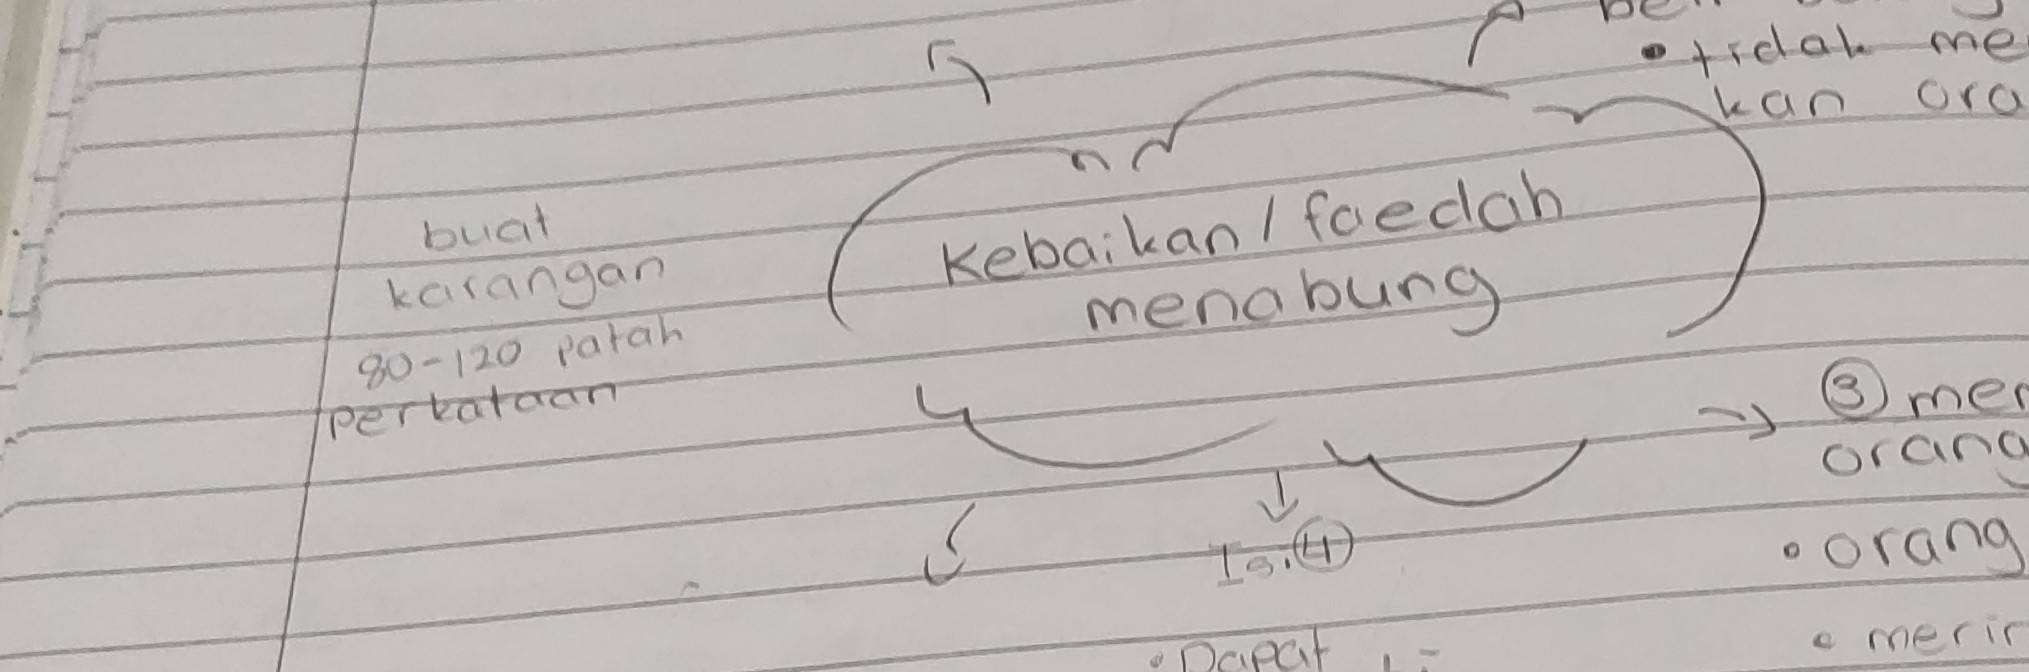 • tidak me
kan ora
buat
karangan
80-120 patah
perkataan
Kebaikan / faedah
menabung
③ mer
orang
Isi ④
• orang
• merin
• Dapat